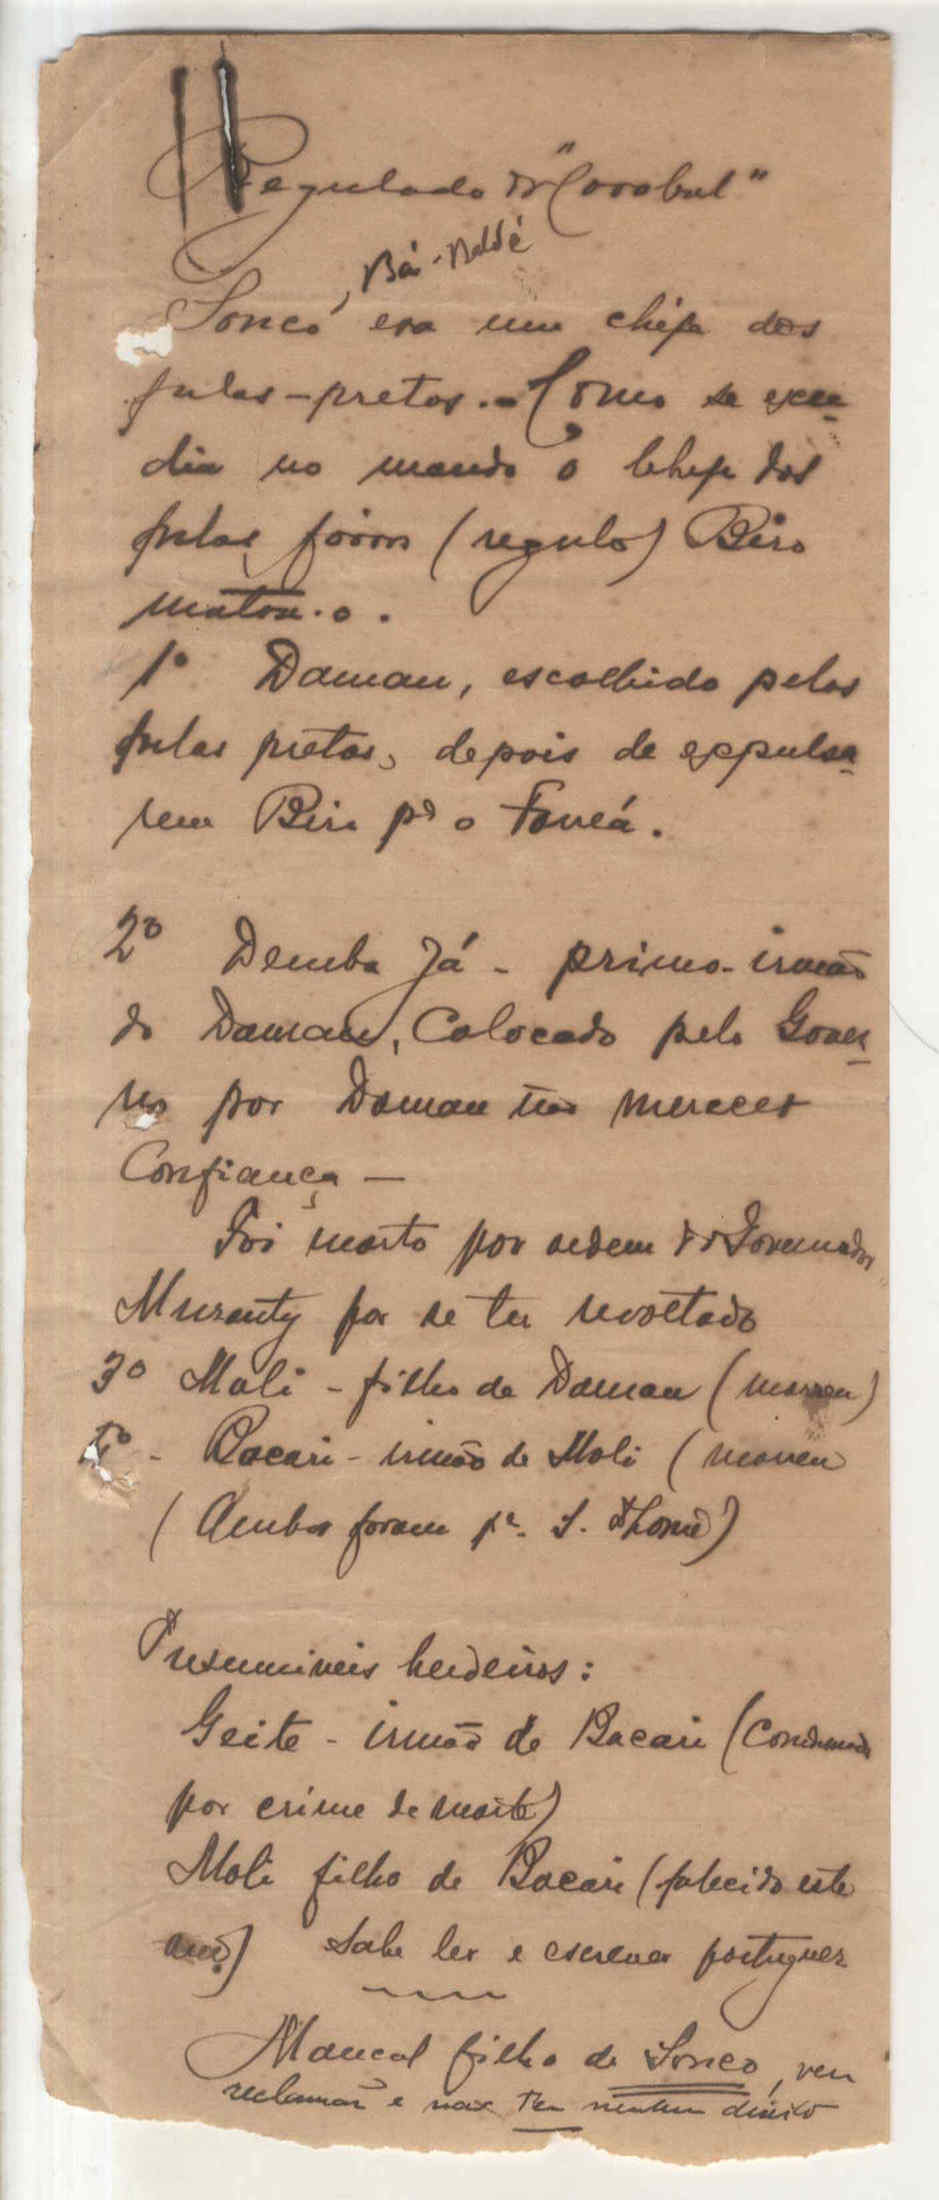 Regulado de "Corobal"
Bá-Baldé
Soncó, era um chefe dos
fulas-pretos.- Como se exce-
dia no mando o Chefe dos
fulas fôrros (regulo) Biro
matou-o.
1º Daman, escolhido pelos
fulas pretos, depois de expulsa-
rem Biro pª o Forreá.
2º Demba Já - primo-irmão
do Daman, Colocado pelo Gover-
no por Daman não merecer
Confiança -
Foi morto por ordem do Governador
Muzanty por se ter revoltado
3º Moli - filho de Daman (morreu)
4º - Bacari - irmão de Moli (morreu
(Ambos foram pª. S. Thomé)
Presumiveis herdeiros:
Geite - irmão de Bacari (Condemnado
por crime de morte)
Moli filho de Bacari (falecido este
ano) Sabe ler e escrever portuguez
Mancal filho de Soncó, vem
reclamar e não tem nenhum direito